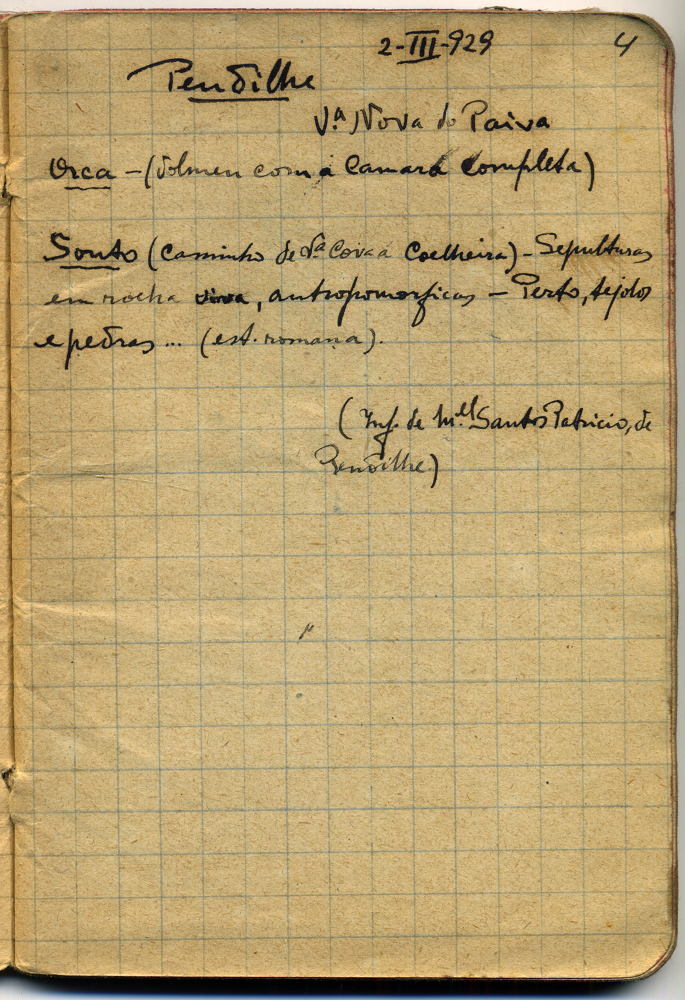 2-III-929 4
Pendilhe
V.ª Nova do Paiva
Orca - (dolmen com a Camara completa)
Souto (caminho de V.ª Cova a Coelheira) - Sepulturas
em rocha viva, antropomorficas - Perto, tejolos
e pedras... (est. romana).
(Inf. de M.el Santos Patricio, de
Pendilhe)